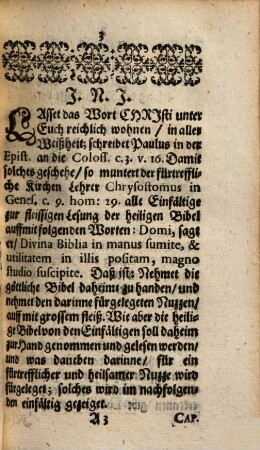 3
J. N. J.
LAsset das Wort CHRJsti unter
Euch reichlich wohnen / in aller
Weißheit; schreibet Paulus in der
Epist. an die Coloss. c. 3. v. 16. Damit
solches geschehe / so muntert der fürtreffli-
che Kirchen Lehrer Chrysostomus in
Genes. c. 9. hom: 29. alle Einfältige
zur fleissigen Lesung der heiligen Bibel
auff mit folgenden Worten: Domi, sagt
er / Divina Biblia in manus sumite, &
utilitatem in illis positam, magno
studio suscipite. Daß ist: Nehmet die
göttliche Bibel daheim zu handen / und
nehmet den darinne fürgelegeten Nuzzen /
auff mit grossem fleiß. Wie aber die heili-
ge Bibel von den Einfältigen soll daheim
zur Hand genommen und gelesen werden /
und was daneben darinne / für ein
fürtrefflicher und heilsamer Nuzze wird
fürgeleget; solches wird im nachfolgen-
den einfältig gezeiget.
A 3
CAP.